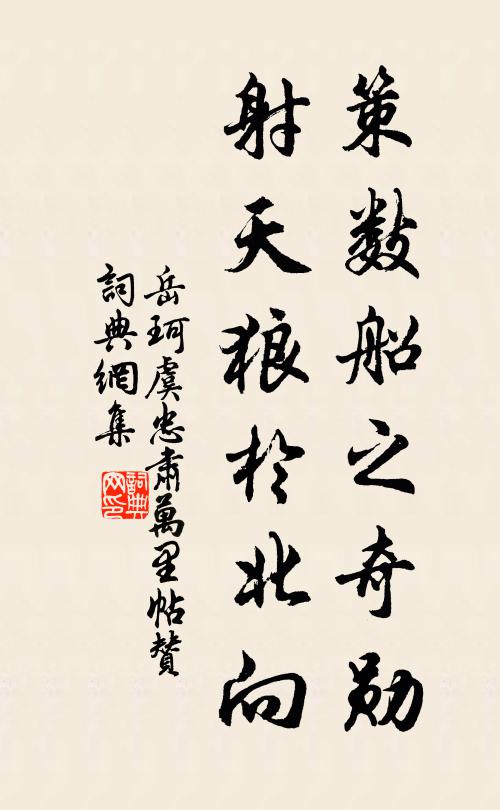 策数船之奇勛
射天狼於北向
岳珂虞忠肅萬里帖贊
詞典網集
詞典
网印